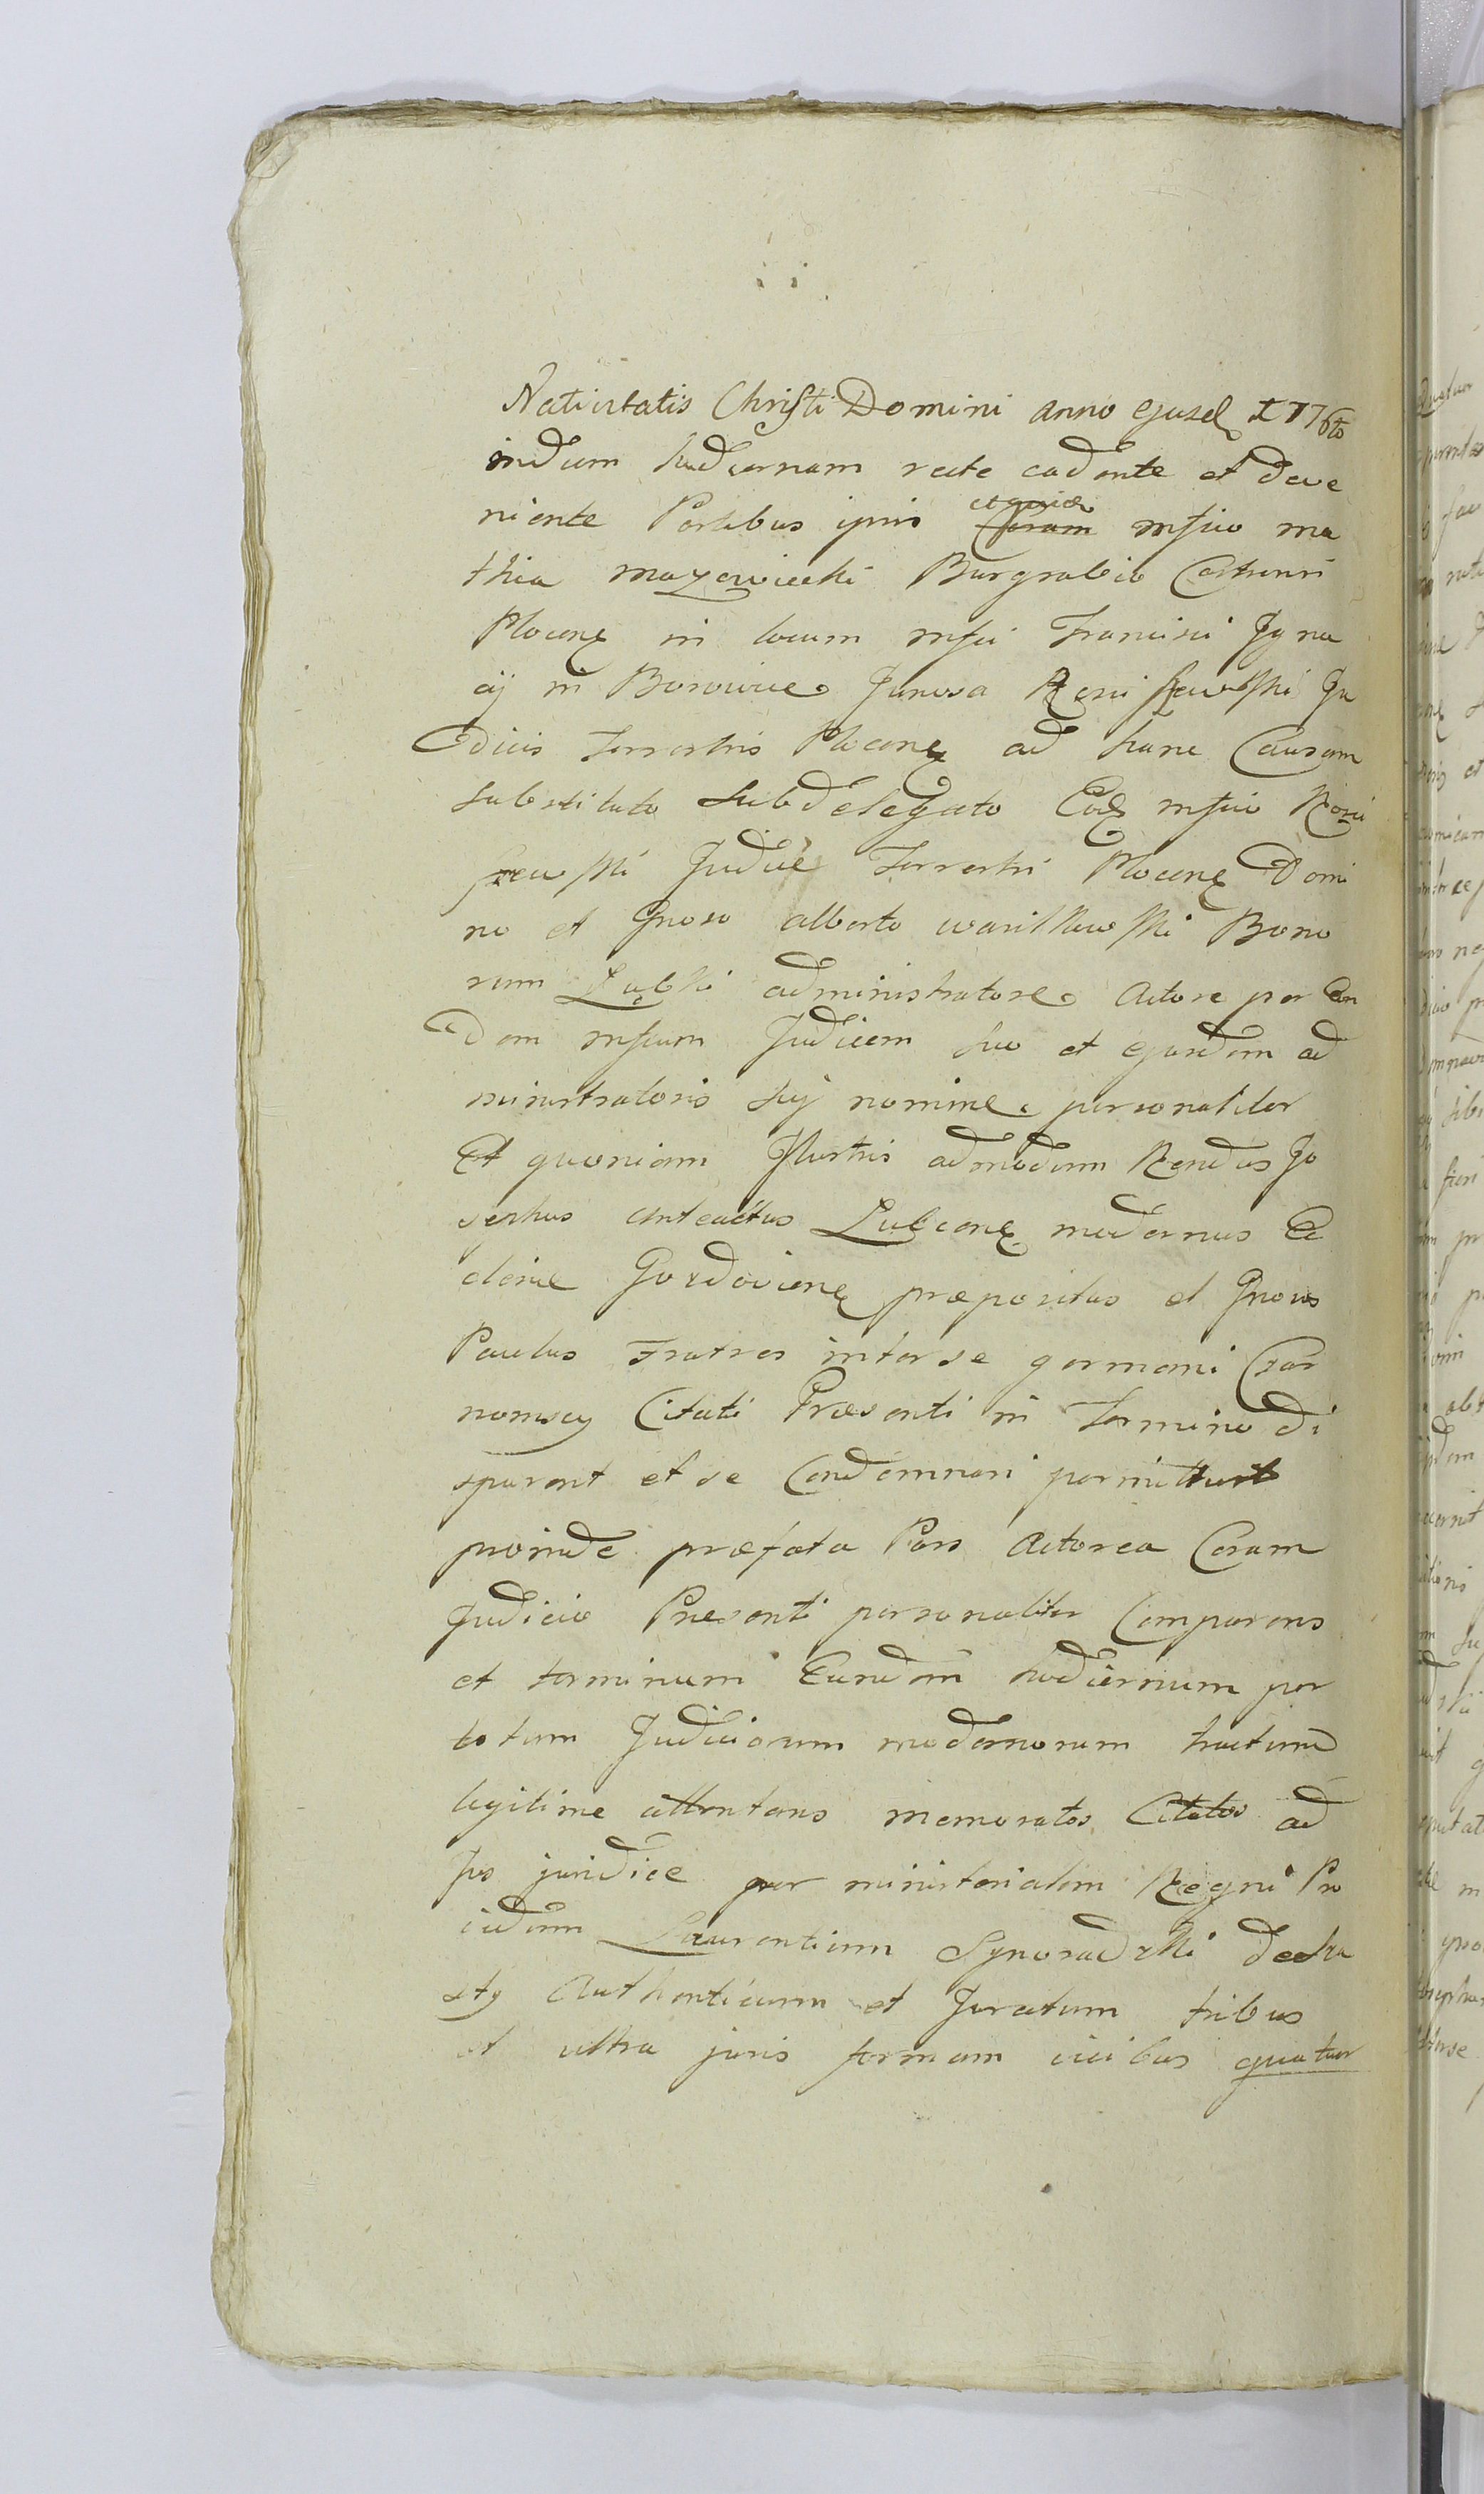 Nativitatis Christi Domini anno ejusd 1776to
in diem hodiernam recte cadente et deve
niente Partibus ipsis Coram mfico Ma
thia Mazowiecki Burgrabio Castrensi
Plocens in locum mfici Francisci Igna
cij in Borowice Junosa Rościszewski Ju
dicis Terrestris Plocens ad hanc Causam
substituto subdelegato Eod mfico Rości
szewski Judice Terrestri Plocens Domi
no et Gnoso Alberto Bono
rum Łubki administratore Actore per eun
dem mficum Judicem suo et ejusdem ad
ministratoris sui nomine personaliter
Et quoniam Illustris admodum Rendus Jo
sephus anteactus Lubcens modernus Ec
clesiae Gozdoviens praepositus et Gnosus
Paulus Fratres inter se germani Czar
nomscy Citati Praesenti in Termino di
sparent et se Condemnari permittunt
proinde praefata Pars Actorea Coram
Judicio Praesenti personaliter Comparens
et terminum Eundem hodiernum per
totum Judiciorum modernorum tractum
legitime attentans memoratos Citatos ad
jus juridice per ministerialem Regni Pro
vidum Laurentium
Authenticum et Juratum tribus
et ultra juris formam vicibus quatuor